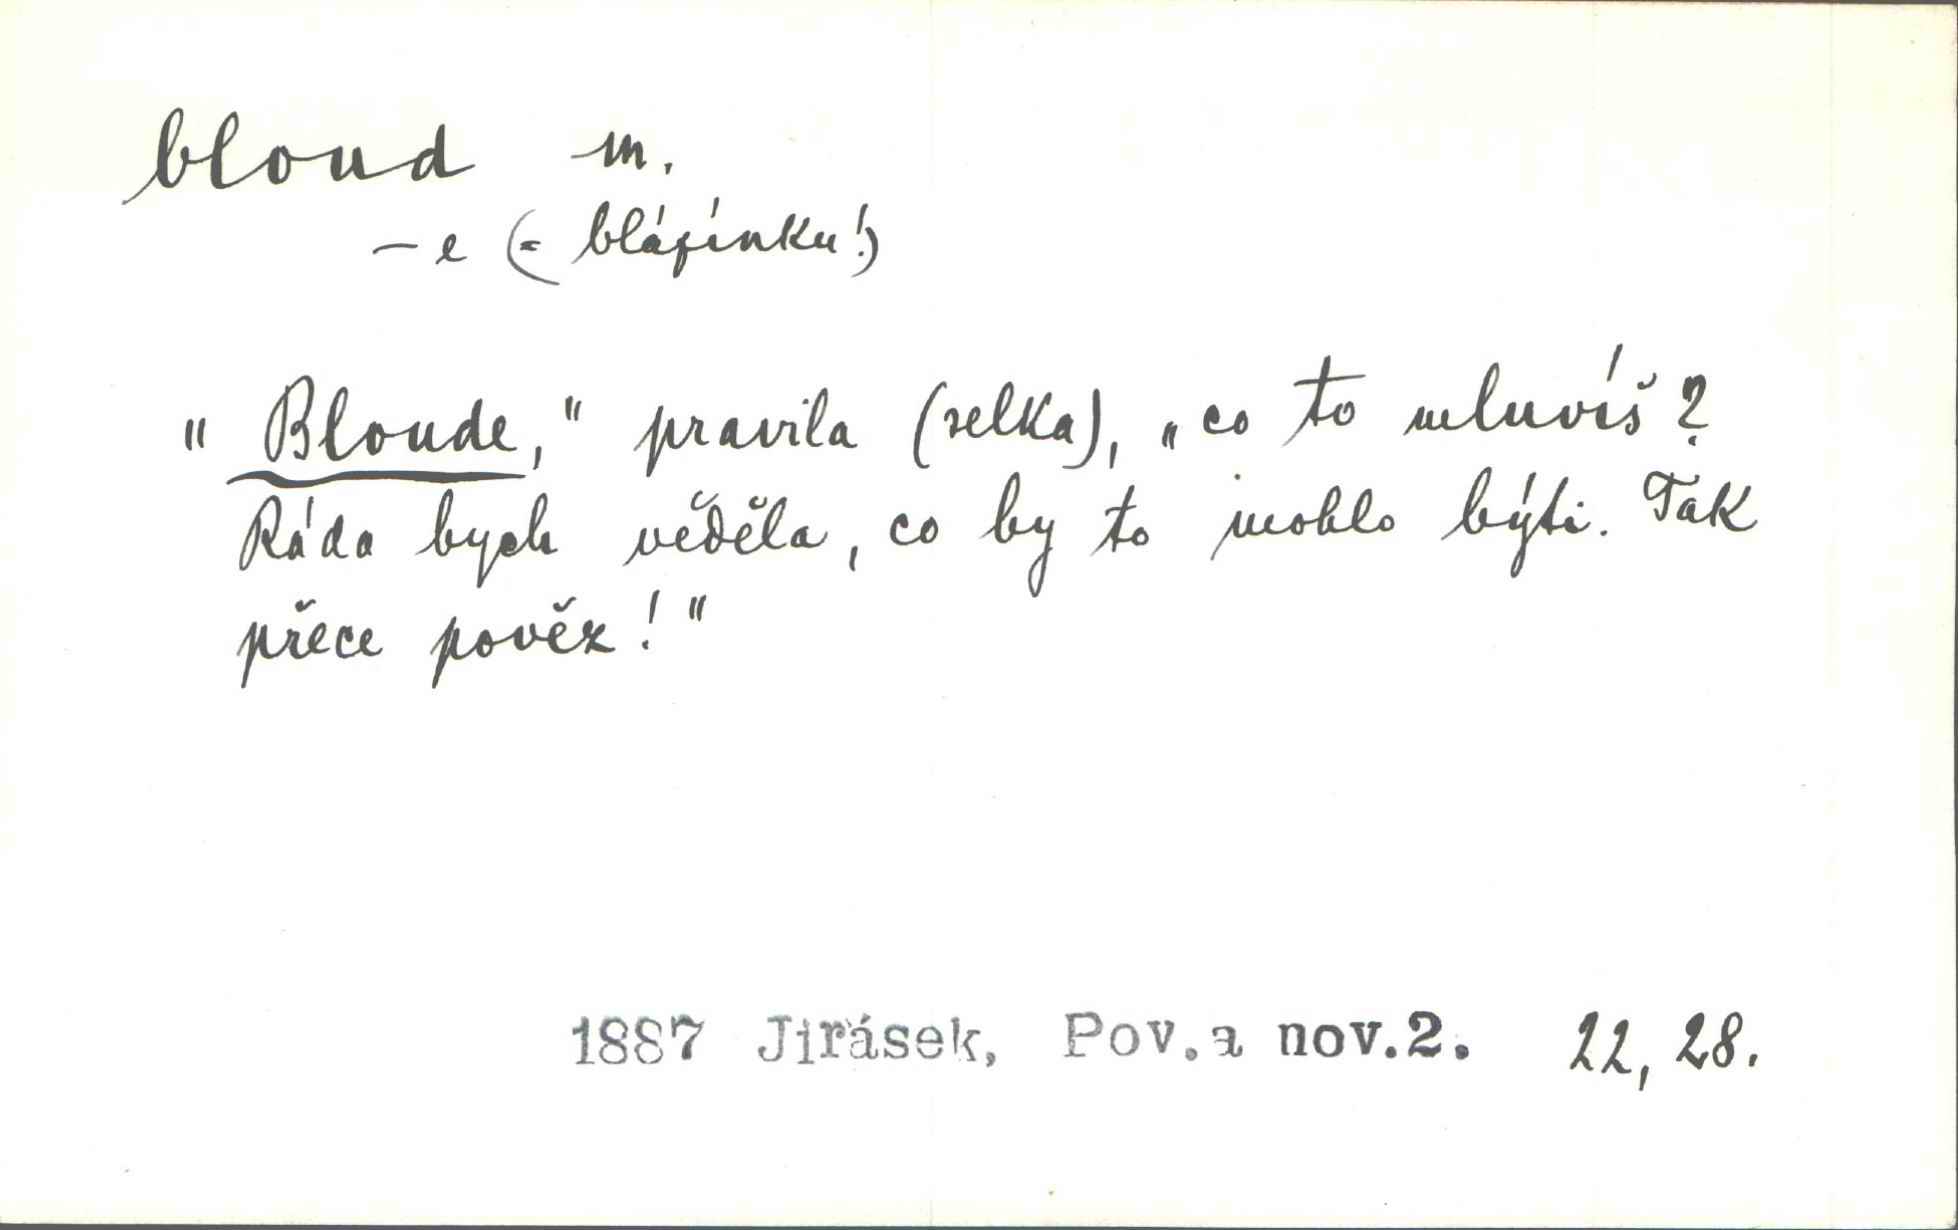 bloud m.
-e (= blázínku!)
"Bloude," pravila (selka), "co to mluvíš?
Ráda bych věděla, co by to mohlo býti. Tak
přece pověz!"
1887 Jirásek, Pov.a nov.2. 22, 28.